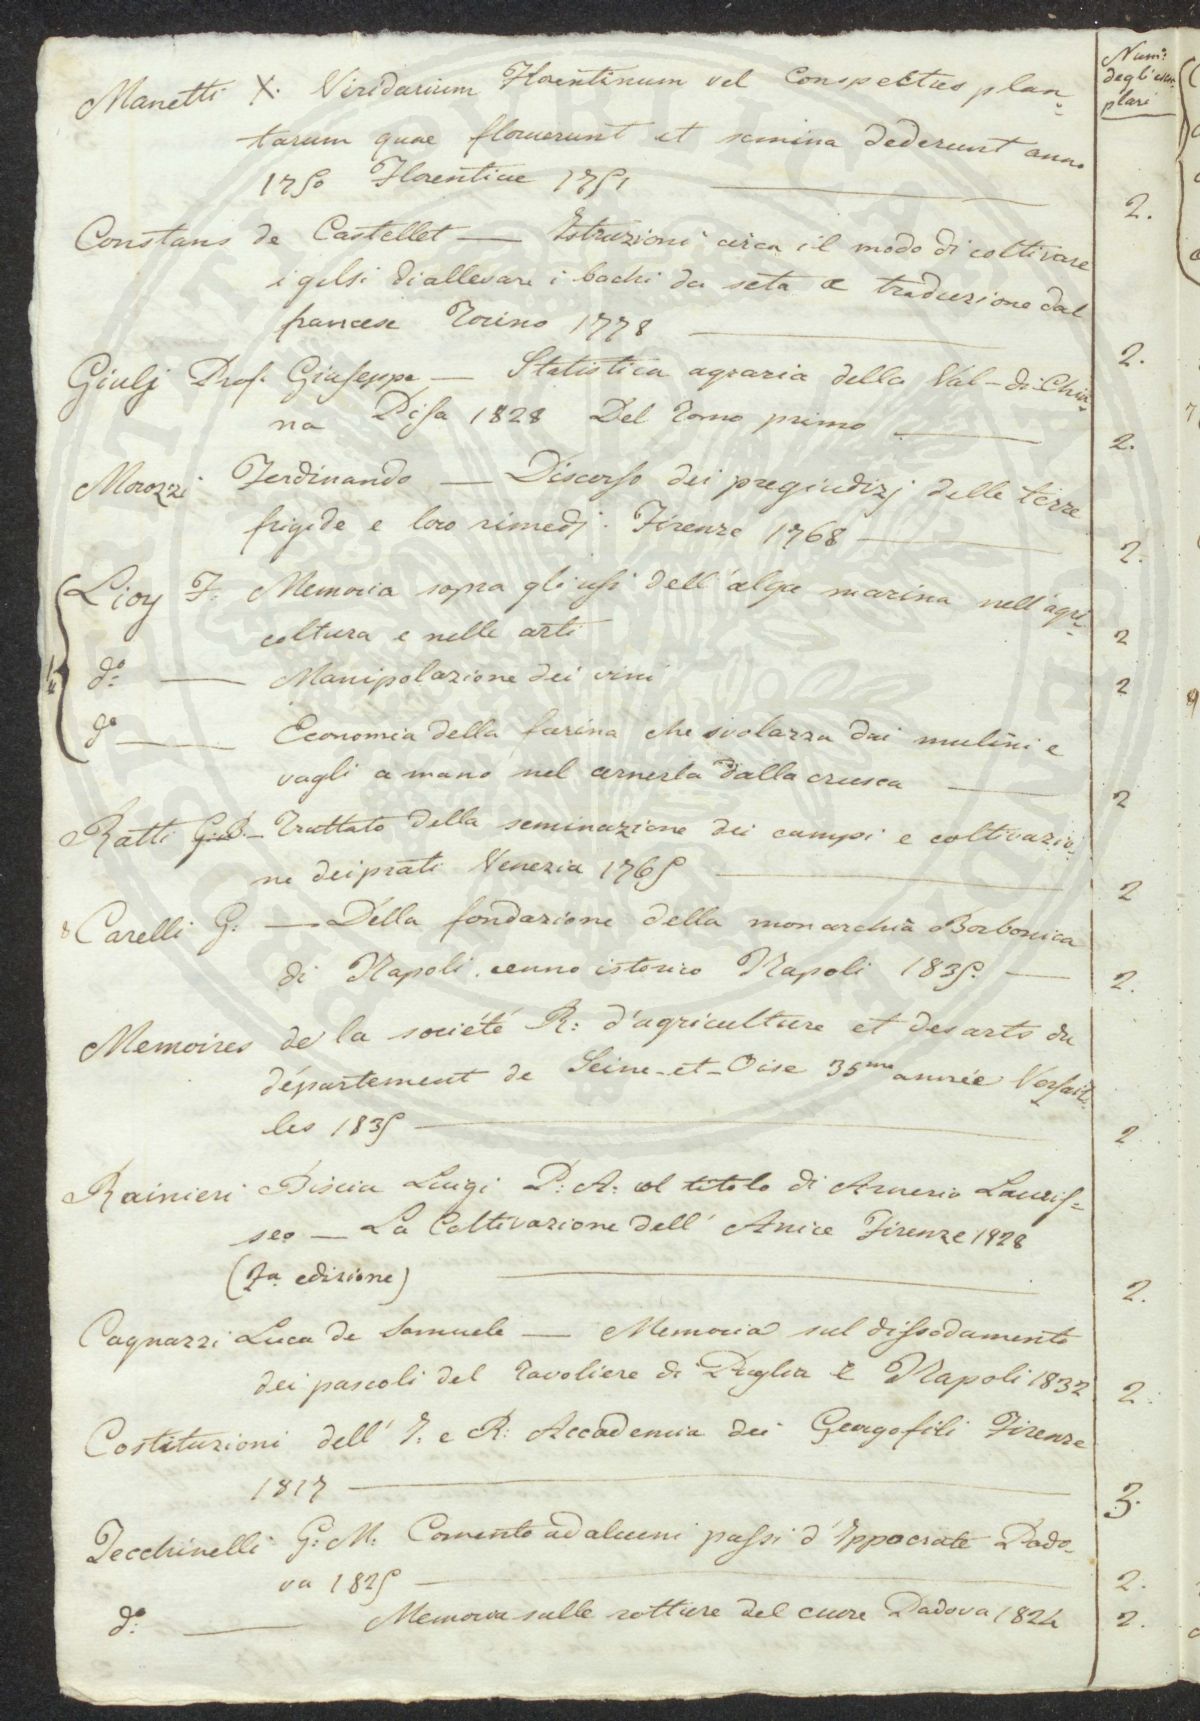 Num.o
degli esem-
plari
Manetti X. Viridarium Florentinum vel Conspectus plan-
tarum quae floruerunt et semina dederunt anno
1750 Florentiae 1751 2.
Constans de Castellet — Istruzioni circa il modo di coltivare
i gelsi di allevare i bachi da seta & traduzione dal
francese Torino 1778 2.
Giulj Prof. Giuseppe — Statistica agraria della Val-di-Chia-
na Pisa 1828 Del Tomo primo 2.
Morozzi Ferdinando — Discorso dei pregiudizj delle terre
frigide e loro rimedj. Firenze 1768 2.
Lioy F. Memoria sopra gli usi dell'alga marina nell'agri-
coltura e nelle arti 2
d.o — Manipolazione dei vini 2
d.o — Economia della farina che svolazza dai mulini e
vagli a mano nel cernerla dalla crusca 2
Ratti G.B. — Trattato della seminazione dei campi e coltivazio-
ne dei prati Venezia 1765 2
8 Carelli G. — Della fondazione della monarchia Borbonica
di Napoli. cenno istorico Napoli 1835. — 2.
Memoires de la société R: d'agriculture et des arts du
département de Seine-et-Oise 35me année Versail-
les 1835 2
Rainieri Biscia Luigi P: A: col titolo di Amerio Lauris-
seo — La Coltivazione dell'Anice Firenze 1828
(2a edizione) 2.
Cagnazzi Luca de Samuele — Memoria sul dissodamento
dei pascoli del Tavoliere di Puglia Napoli 1832 2.
Costituzioni dell'I. e R: Accademia dei Georgofili Firenze
1817 3.
Zecchinelli G: M: Comento ad alcuni passi d'Ippocrate Pado-
va 1825 2.
d.o — Memoria sulle rotture del cuore Padova 1824 2.